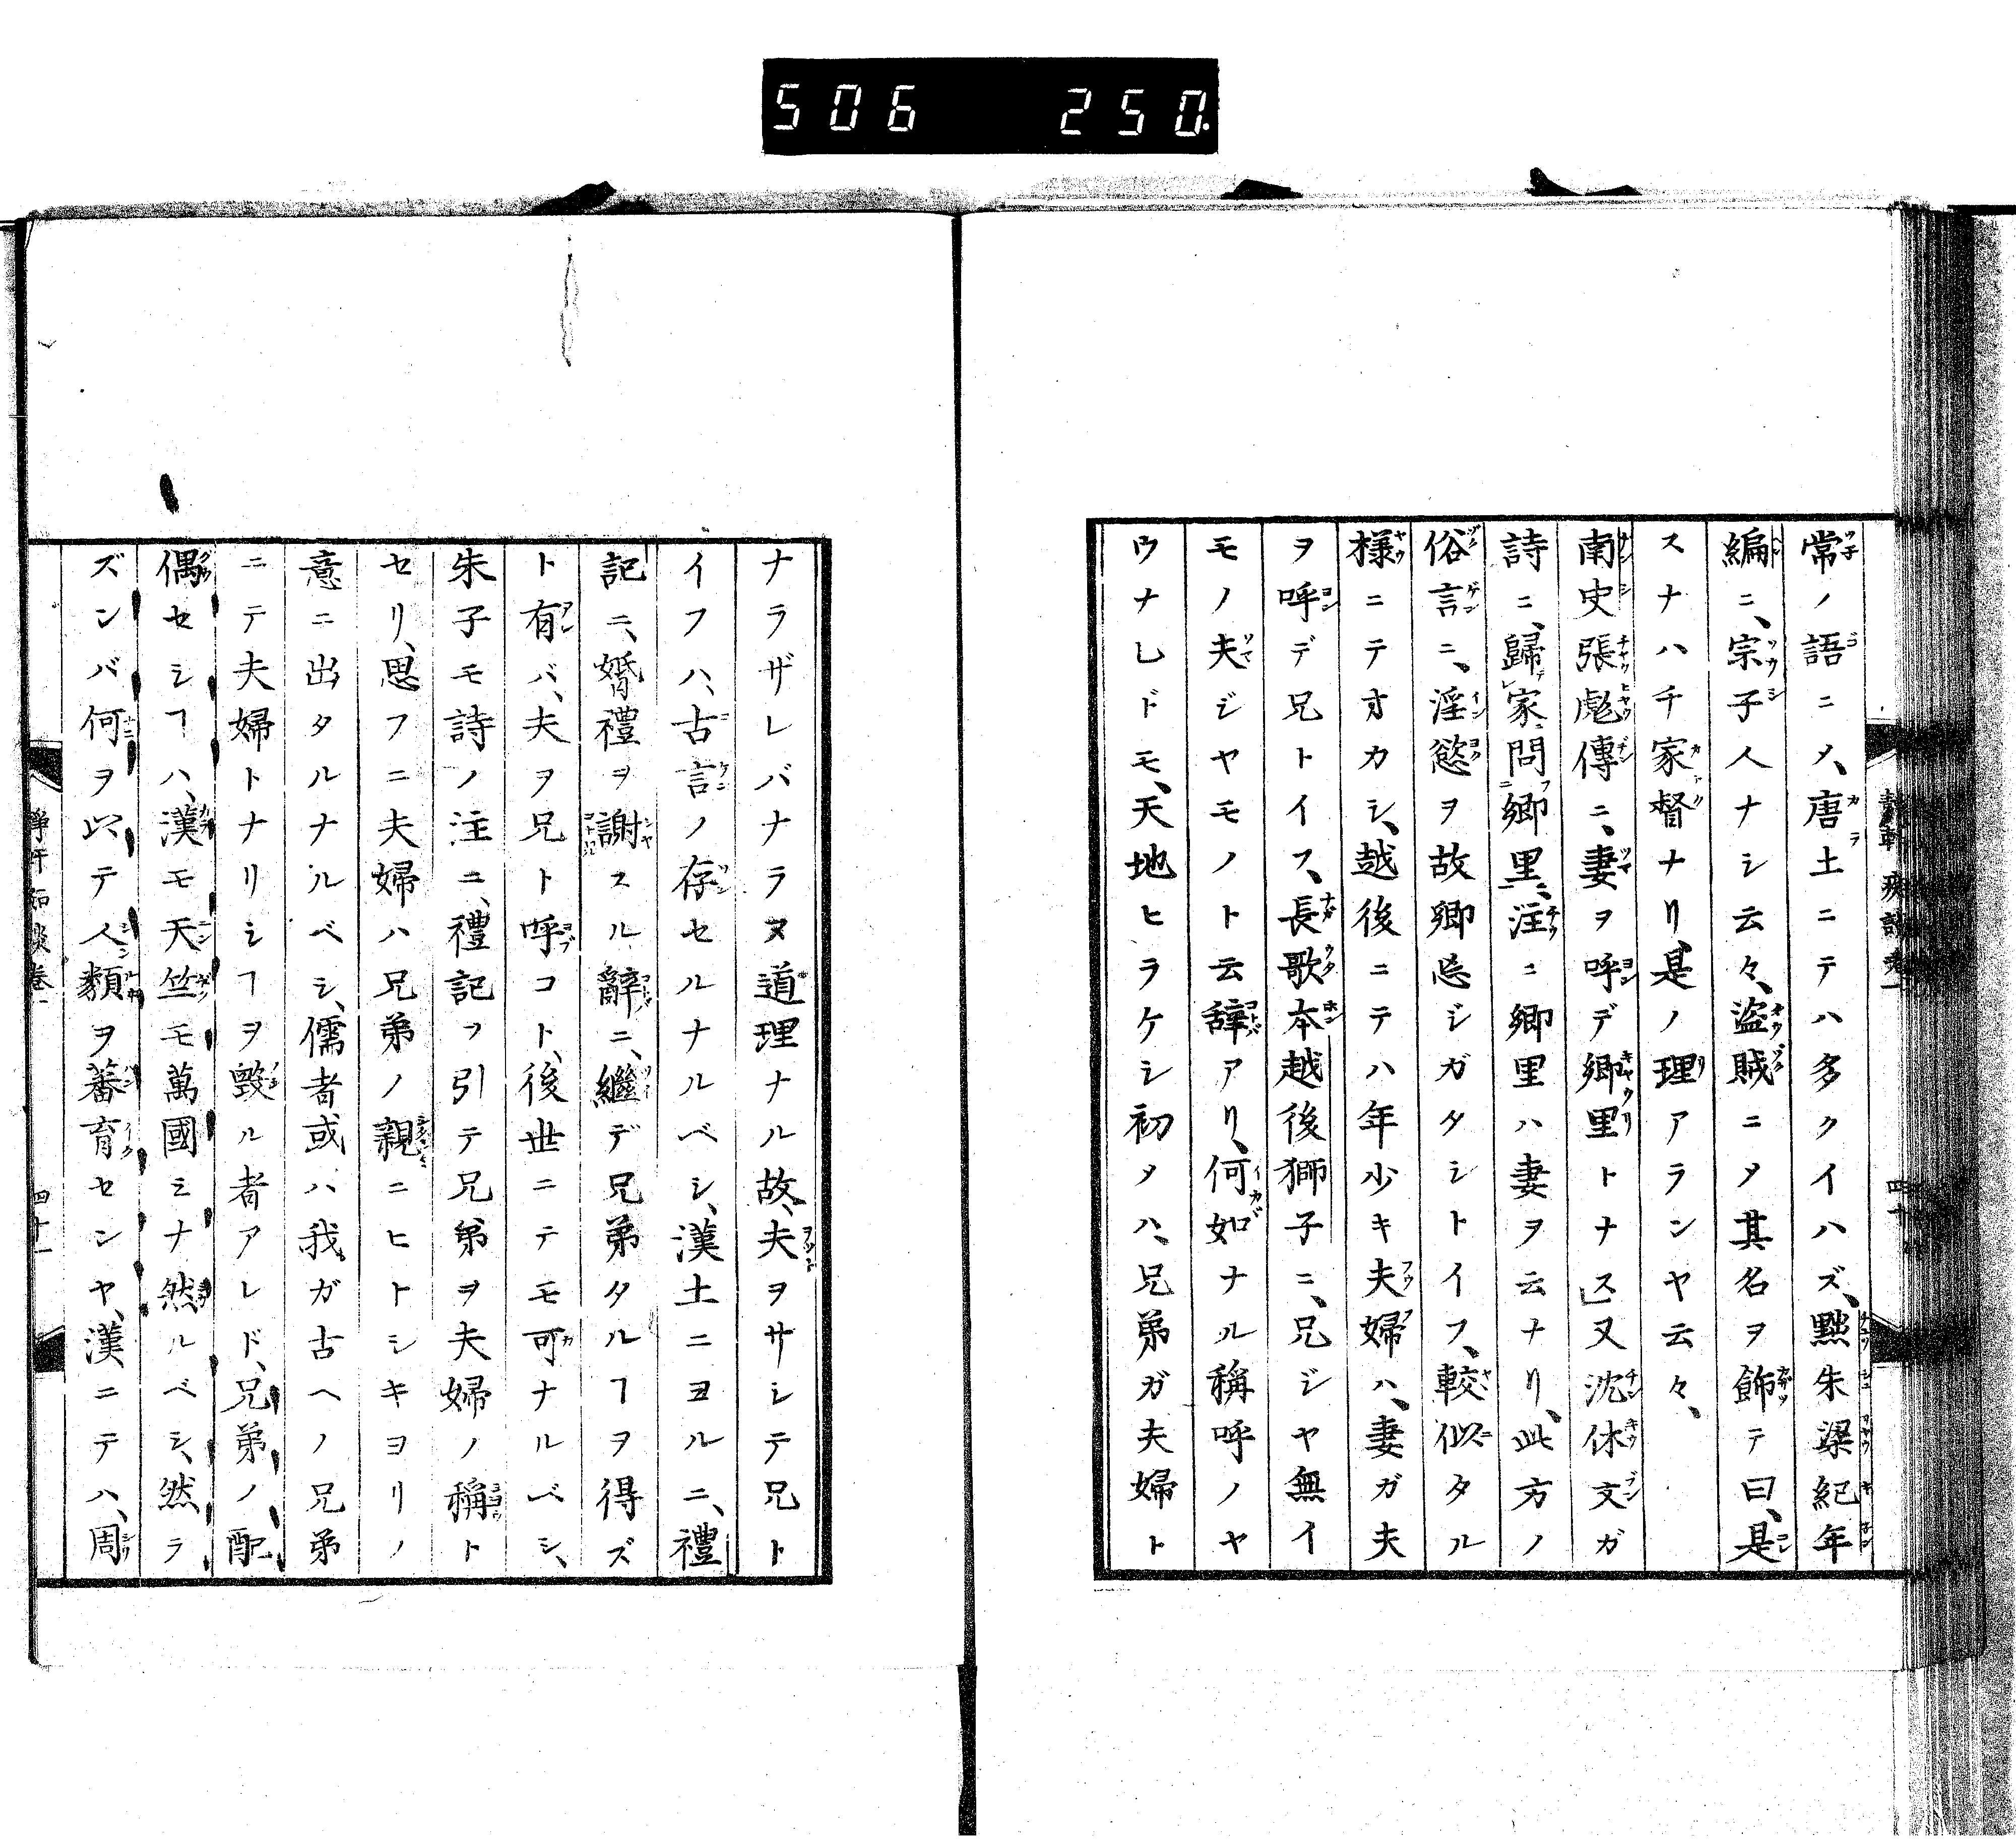 506 250.
常ノ語ニメ、唐土ニテハ多クイハズ、黙朱梁紀年
編ニ、宗子人ナシ云々、盗賊ニメ其名ヲ飾テ曰、是
スナハチ家督ナリ、是ノ理アランヤ云々、
南史張彪傳ニ、妻ヲ呼デ卿里トナス」又沈休文ガ
詩ニ、歸家問卿里、注ニ卿里ハ妻ヲ云ナリ、此方ノ
俗言ニ、淫慾ヲ故卿忘ジガタシトイフ、較似タル
様ニテオカシ、越後ニテハ年少キ夫婦ハ、妻ガ夫
ヲ呼デ兄トイフ、長歌本越後獅子ニ、兄ジヤ無イ
モノ夫ジヤモノト云辞アリ、何如ナル稱呼ノヤ
ウナレドモ、天地ヒラケシ初メハ、兄弟ガ夫婦ト
ナラザレバナラヌ道理ナル故、夫ヲサシテ兄ト
イフハ、古言ノ存セルナルベシ、漢土ニヨルニ、禮
記ニ、婚禮ヲ謝スル辭ニ、繼デ兄弟タルヿヲ得ズ
ト有バ、夫ヲ兄ト呼コト、後世ニテモ可ナルベシ、
朱子モ詩ノ注ニ、禮記ヲ引テ兄弟ヲ夫婦ノ稱ト
セリ、思フニ夫婦ハ兄弟ノ親ニヒトシキヨリノ
意ニ出タルナルベシ、儒者或ハ我ガ古ヘノ兄弟
ニテ夫婦トナリシヿヲ毀ル者アレド、兄弟ノ配
偶セシヿハ、漢モ天竺モ萬國ミナ然ルベシ、然ラ
ズンバ何ヲ以テ人類ヲ蕃育センヤ、漢ニテハ、周
四十一